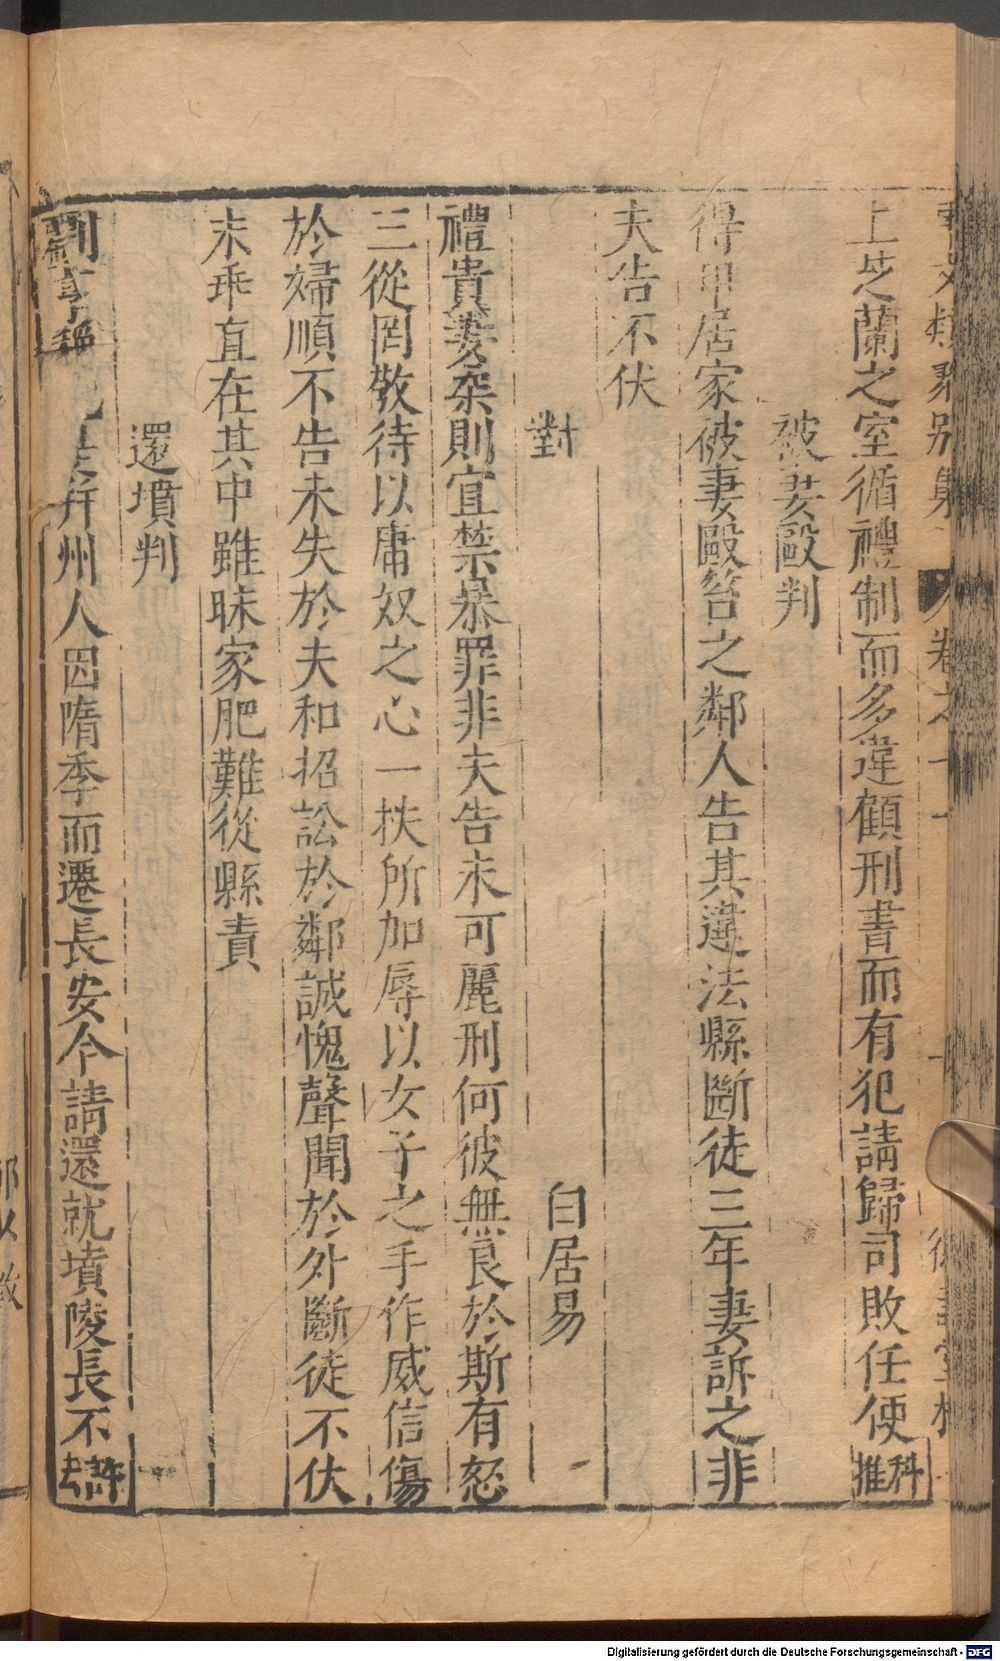 卷之
上芝蘭之室循禮制而多違顧刑書而有犯請歸司敗任使科推
被妻毆判
得甲居家被妻毆笞之鄰人告其違法縣斷徒三年妻訴之非
夫告不伏
對
白居易
禮貴妻柔則宜禁暴罪非夫告未可麗刑何彼無良於斯有怒
三從罔敬待以庸奴之心一抶所加辱以女子之手作威信傷
於婦順不告未失於夫和招訟於鄰誠愧聲聞於外斷徒不伏
未乖直在其中雖昧家肥難從縣責
還墳判
并州人因隋季而遷長安今請還就墳陵長不許去
Digitalisierung gefördert durch die Deutsche Forschungsgemeinschaft - DFG